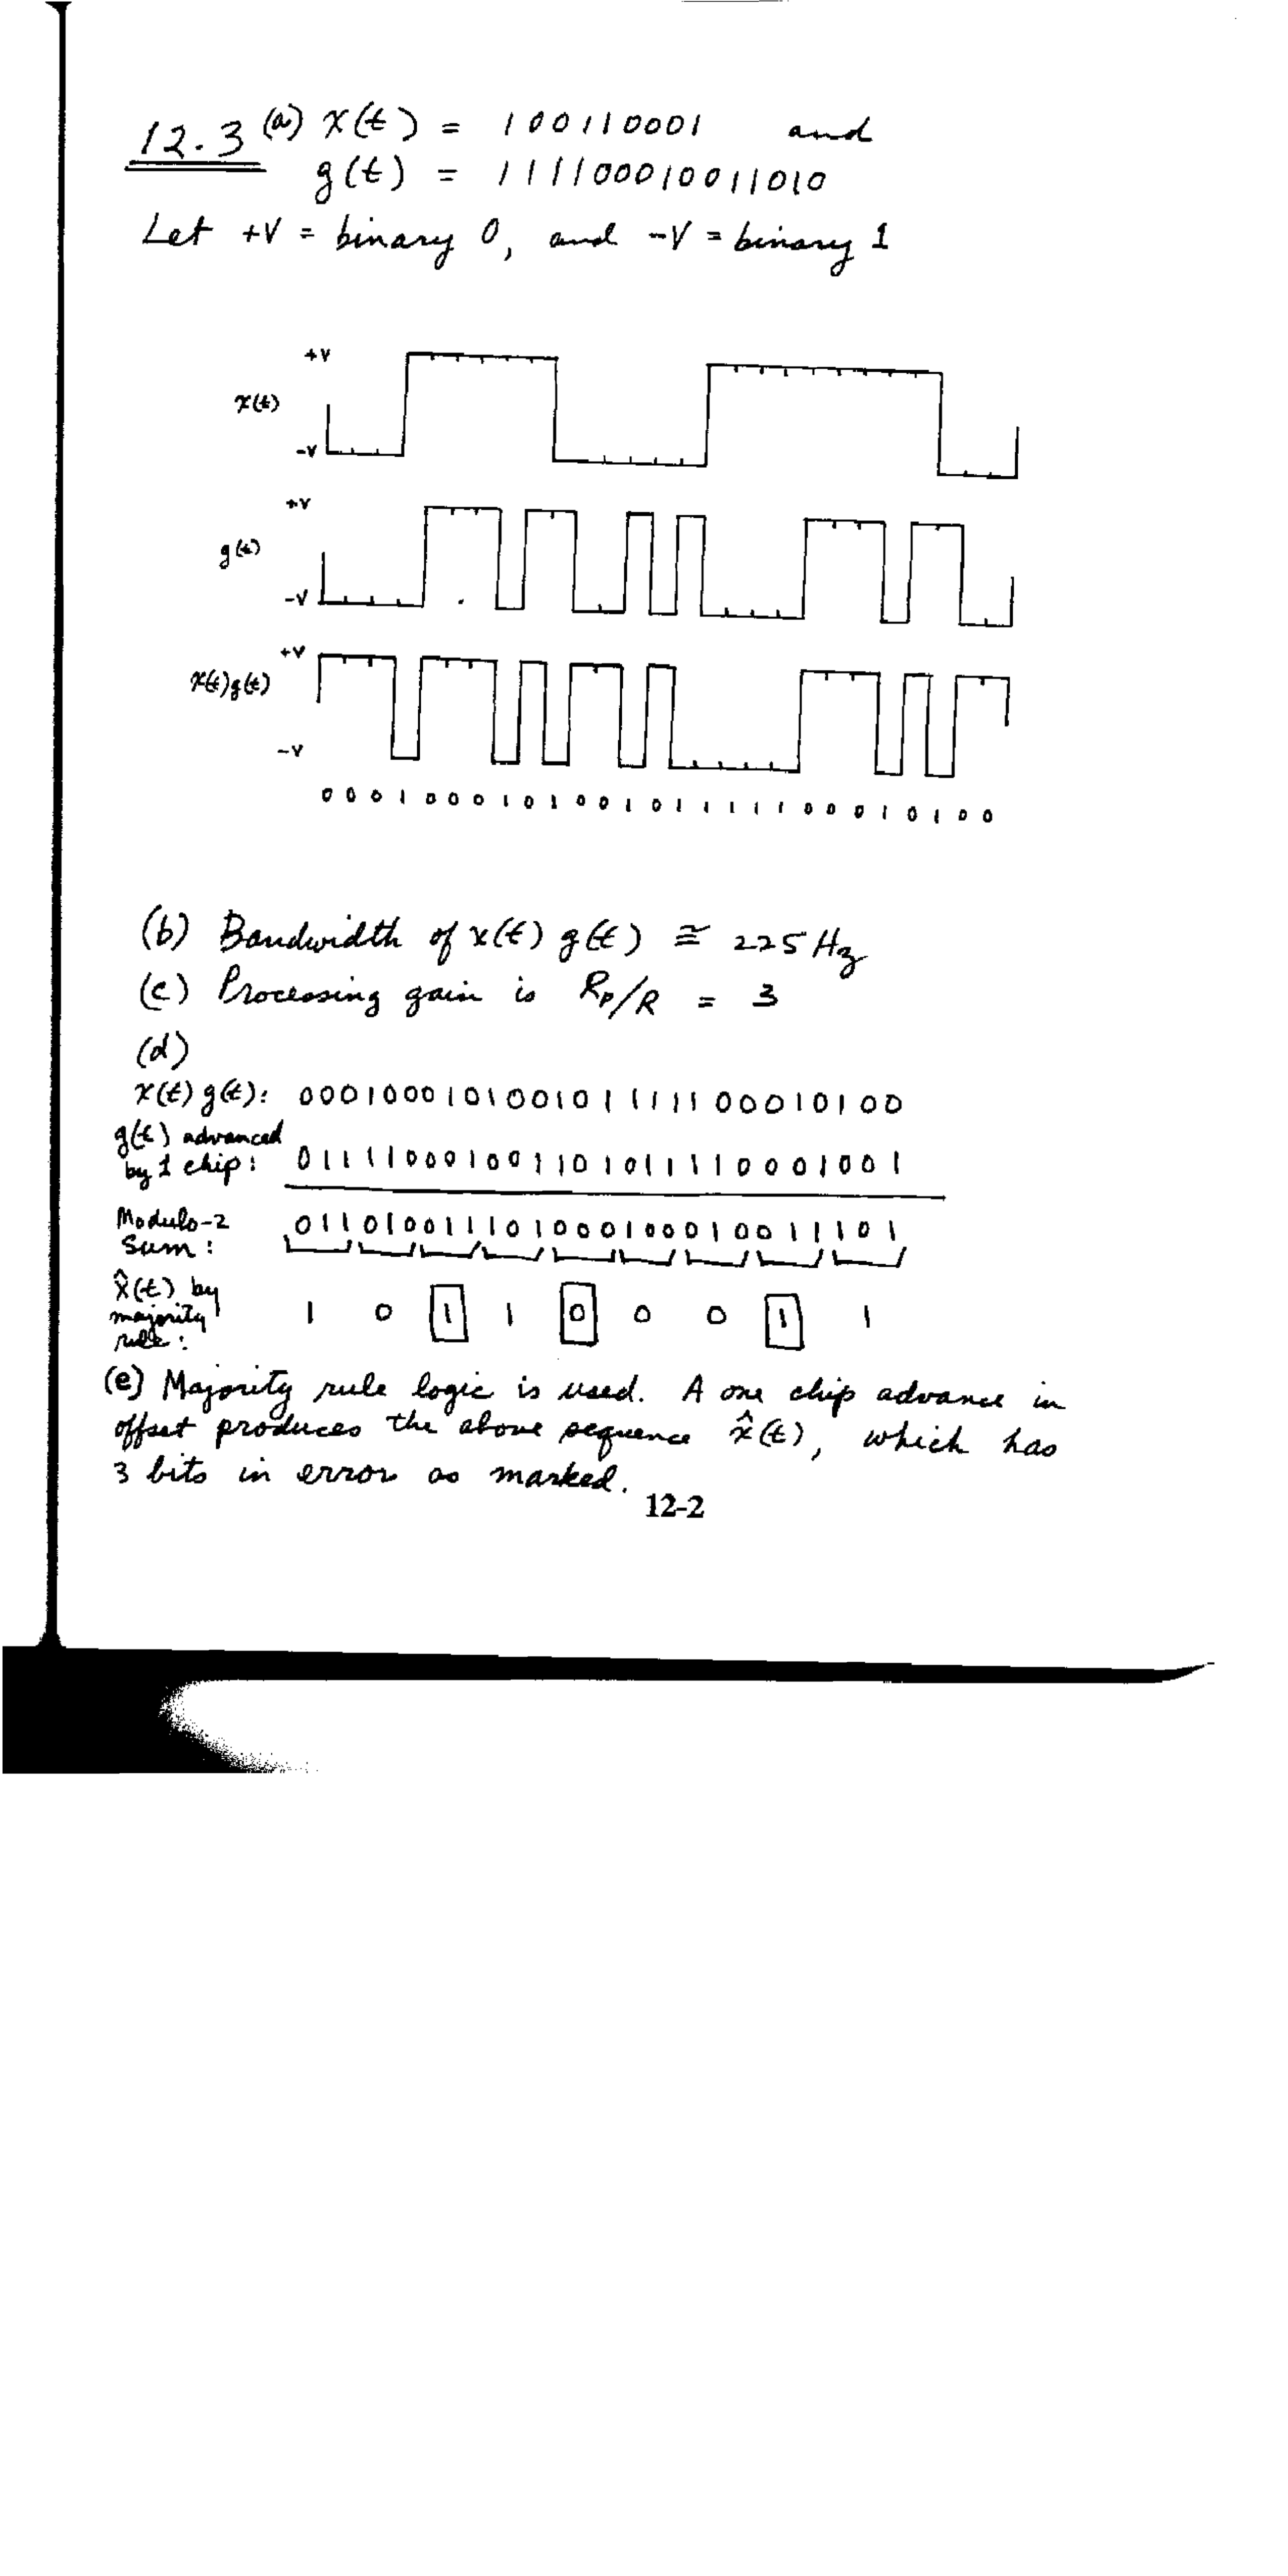 12.3 (a) x(t) = 100110001 and
g(t) = 111100010011010
Let +V = binary 0, and -V = binary 1
+V
x(t)
-V
+V
g(t)
-V
+V
x(t)g(t)
-V
0 0 0 1 0 0 0 1 0 1 0 0 1 0 1 1 1 1 1 0 0 0 1 0 1 0 0
(b) Bandwidth of x(t) g(t) ≅ 225 Hz
(c) Processing gain is Rp/R = 3
(d)
x(t) g(t): 000100010100101111100010100
g(t) advanced
by 1 chip: 011110001001101011110001001
Modulo-2
Sum: 011010011101000100010011101
x̂(t) by
majority
rule: 1 0 1 1 0 0 0 1 1
(e) Majority rule logic is used. A one chip advance in
offset produces the above sequence x̂(t), which has
3 bits in error as marked.
12-2